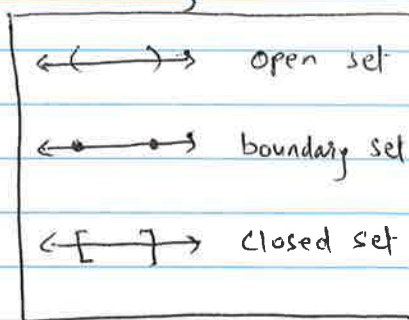 open set
boundary set
closed set